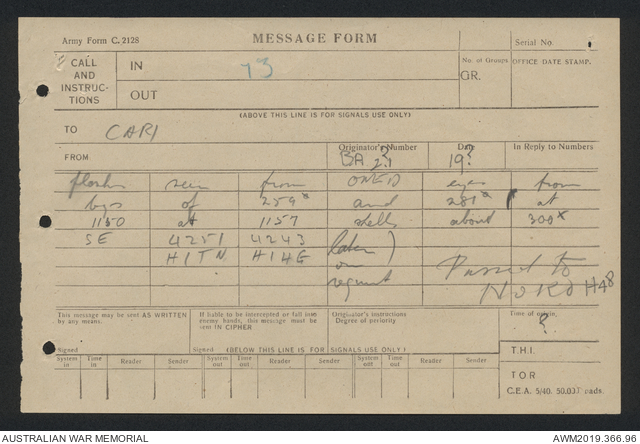 Army Form C. 2128
MESSAGE FORM
Serial No.
CALL AND INSTRUCTIONS
IN
73
No. of Groups
GR.
OFFICE DATE STAMP.
OUT
(ABOVE THIS LINE IS FOR SIGNALS USE ONLY)
TO
FROM
Originator's Number
BA
Date
19?
In Reply to Numbers
seen from eyes from
of 259 and 281 at
1150 at 1157 shells about 300x
SE 4251 4243 later)
on
request
Passed to
This message may be sent AS WRITTEN by any means.
If liable to be intercepted or fall into enemy hands, this message must be sent IN CIPHER
Originator's instructions
Degree of periority
Time of origin.
?
Signed
Signed
(BELOW THIS LINE IS FOR SIGNALS USE ONLY)
System in
Time in
Reader
Sender
System out
Time out
Reader
Sender
System out
Time out
Reader
Sender
T.H.I.
T O R
C.E.A. 5/40.
AUSTRALIAN WAR MEMORIAL
AWM2019.366.96